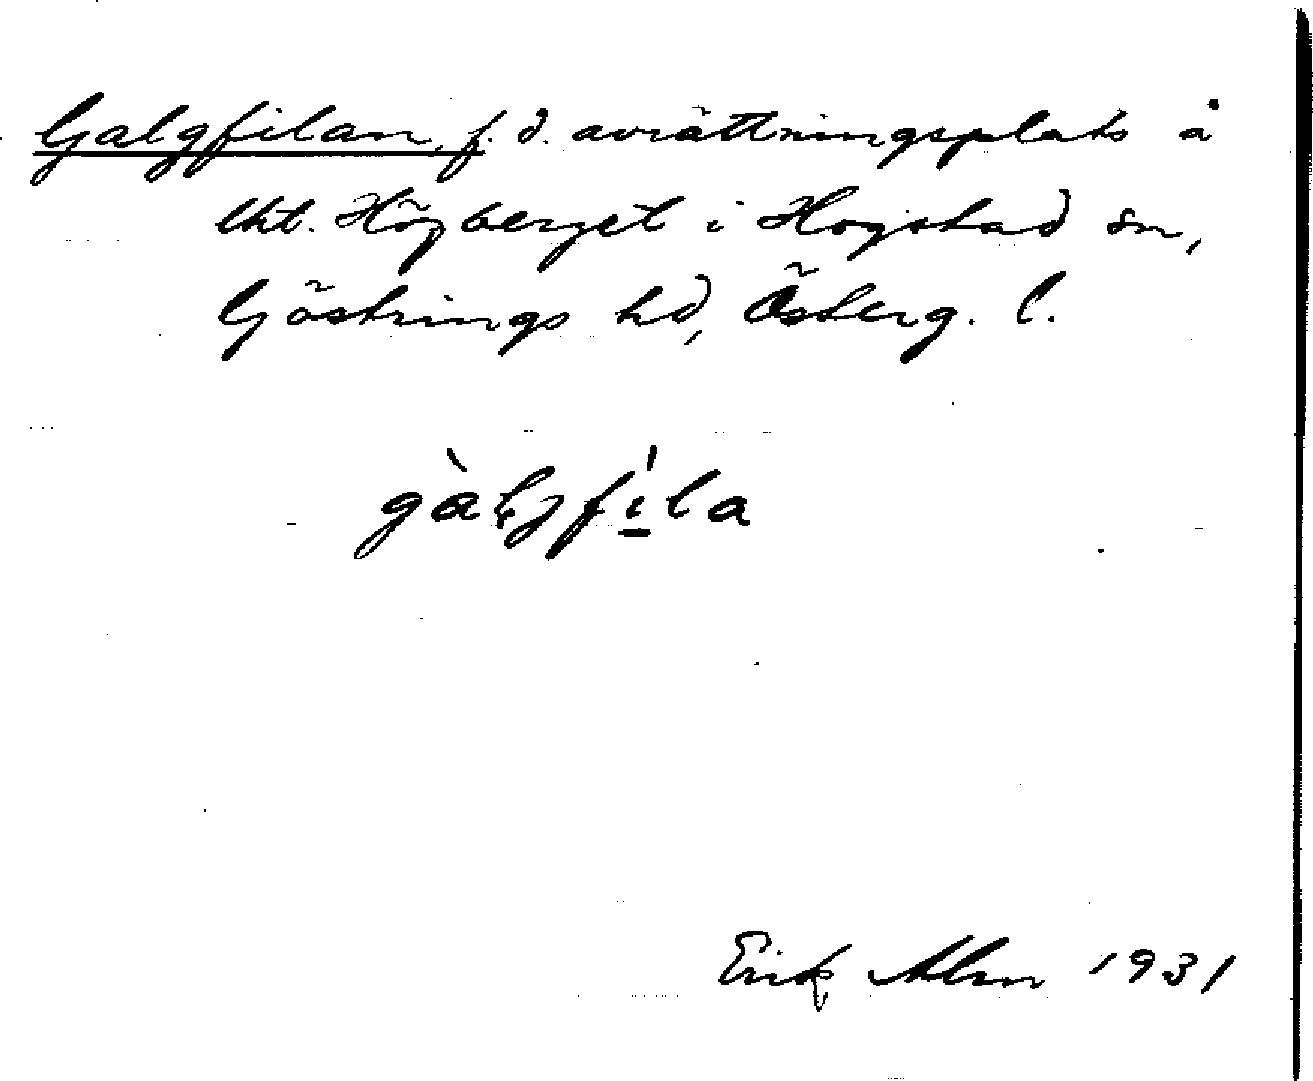 Galgfilan, f. d. avrättningsplats å
lht. Högberget i Hogstad sn,
Göstrings hd, Österg. l.
gàlgfíla
Erik Alm 1931